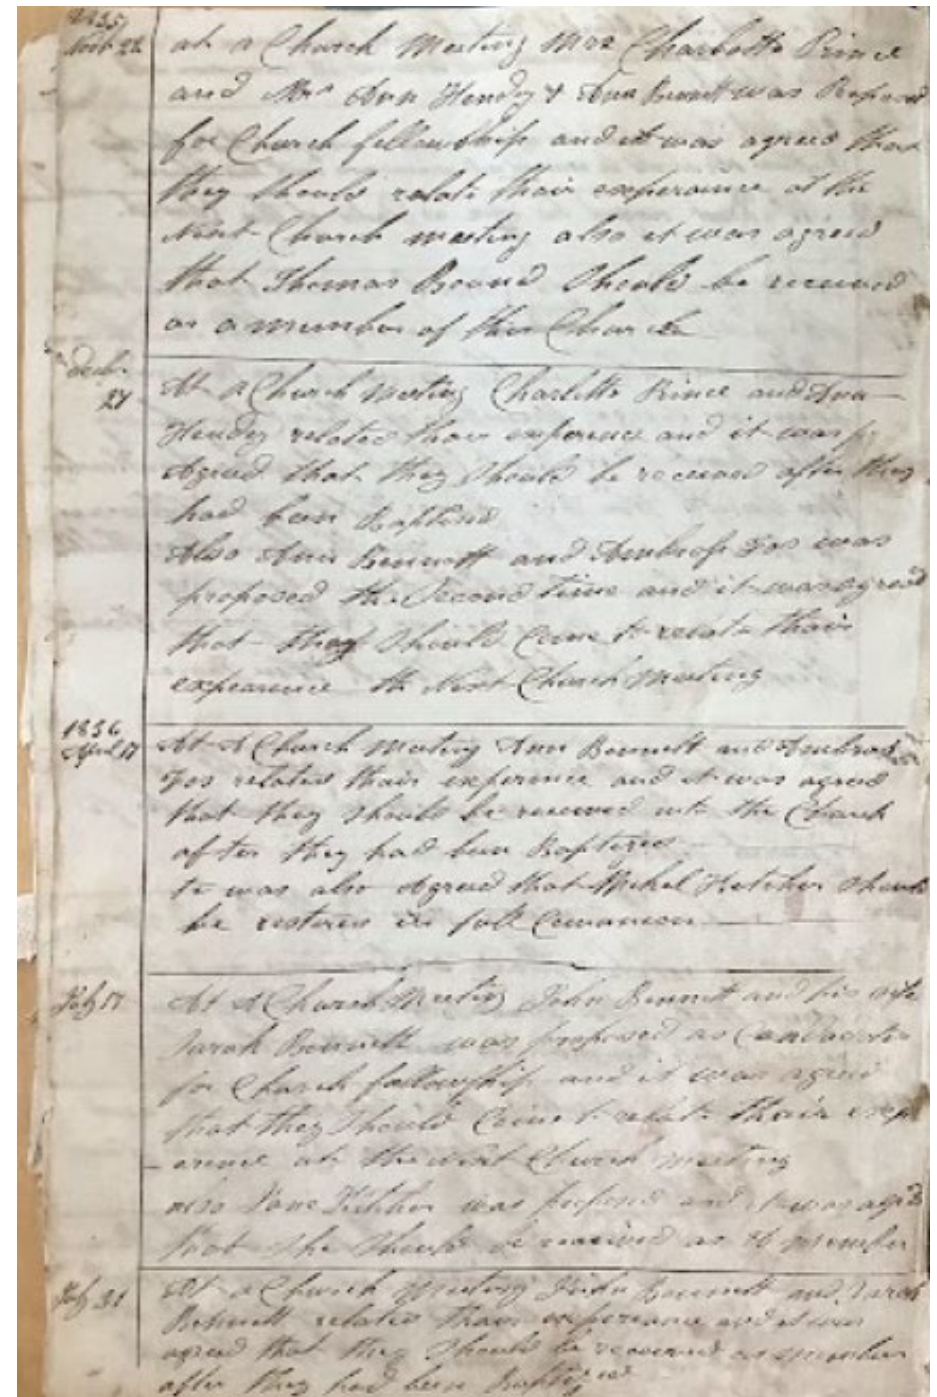 1835
Novr 22 at a Church Meeting Mrs Charlotte Prince
and Mrs Ann Hendy & Ann Bennett was Proposed
for Church fellowship and it was agreed that
they should relate thair experiance at the
Next Church meeting also it was agreed
that Thomas Bound should be received
as a member of this Church
Decbr
27 At A Church Meeting Charlotte Prince and Ann
Hendy related thair experence and it was
Agreed that they should be received after they
had been Baptised
Also Ann Bennett and Ambrose Fos was
proposed the Second time and it was agreed
that they should Come to relate thair
expearence the Next Church Meeting
1836
April 17 At A Church Meeting Ann Bennett and Ambrose
Fos related thair experience and it was agreed
that they should be received into the Church
after they had been Baptized
It was also Agreed that Hetcher should
be restored in full Comunion
July 17 At A Church Meeting John Bennett and his wife
Sarah Bennett was proposed as Candidates
for Church fellowship and it was agreed
that they should Come to relate thair exper
-erence at the Next Church meeting
also Jane was proposed and it was agred
that she should be received as A member
July 31 At a Church Meeting John Bennett and Sarah
Bennett related thair experiance and it was
agreed that they should be received as member
after they had been Baptized